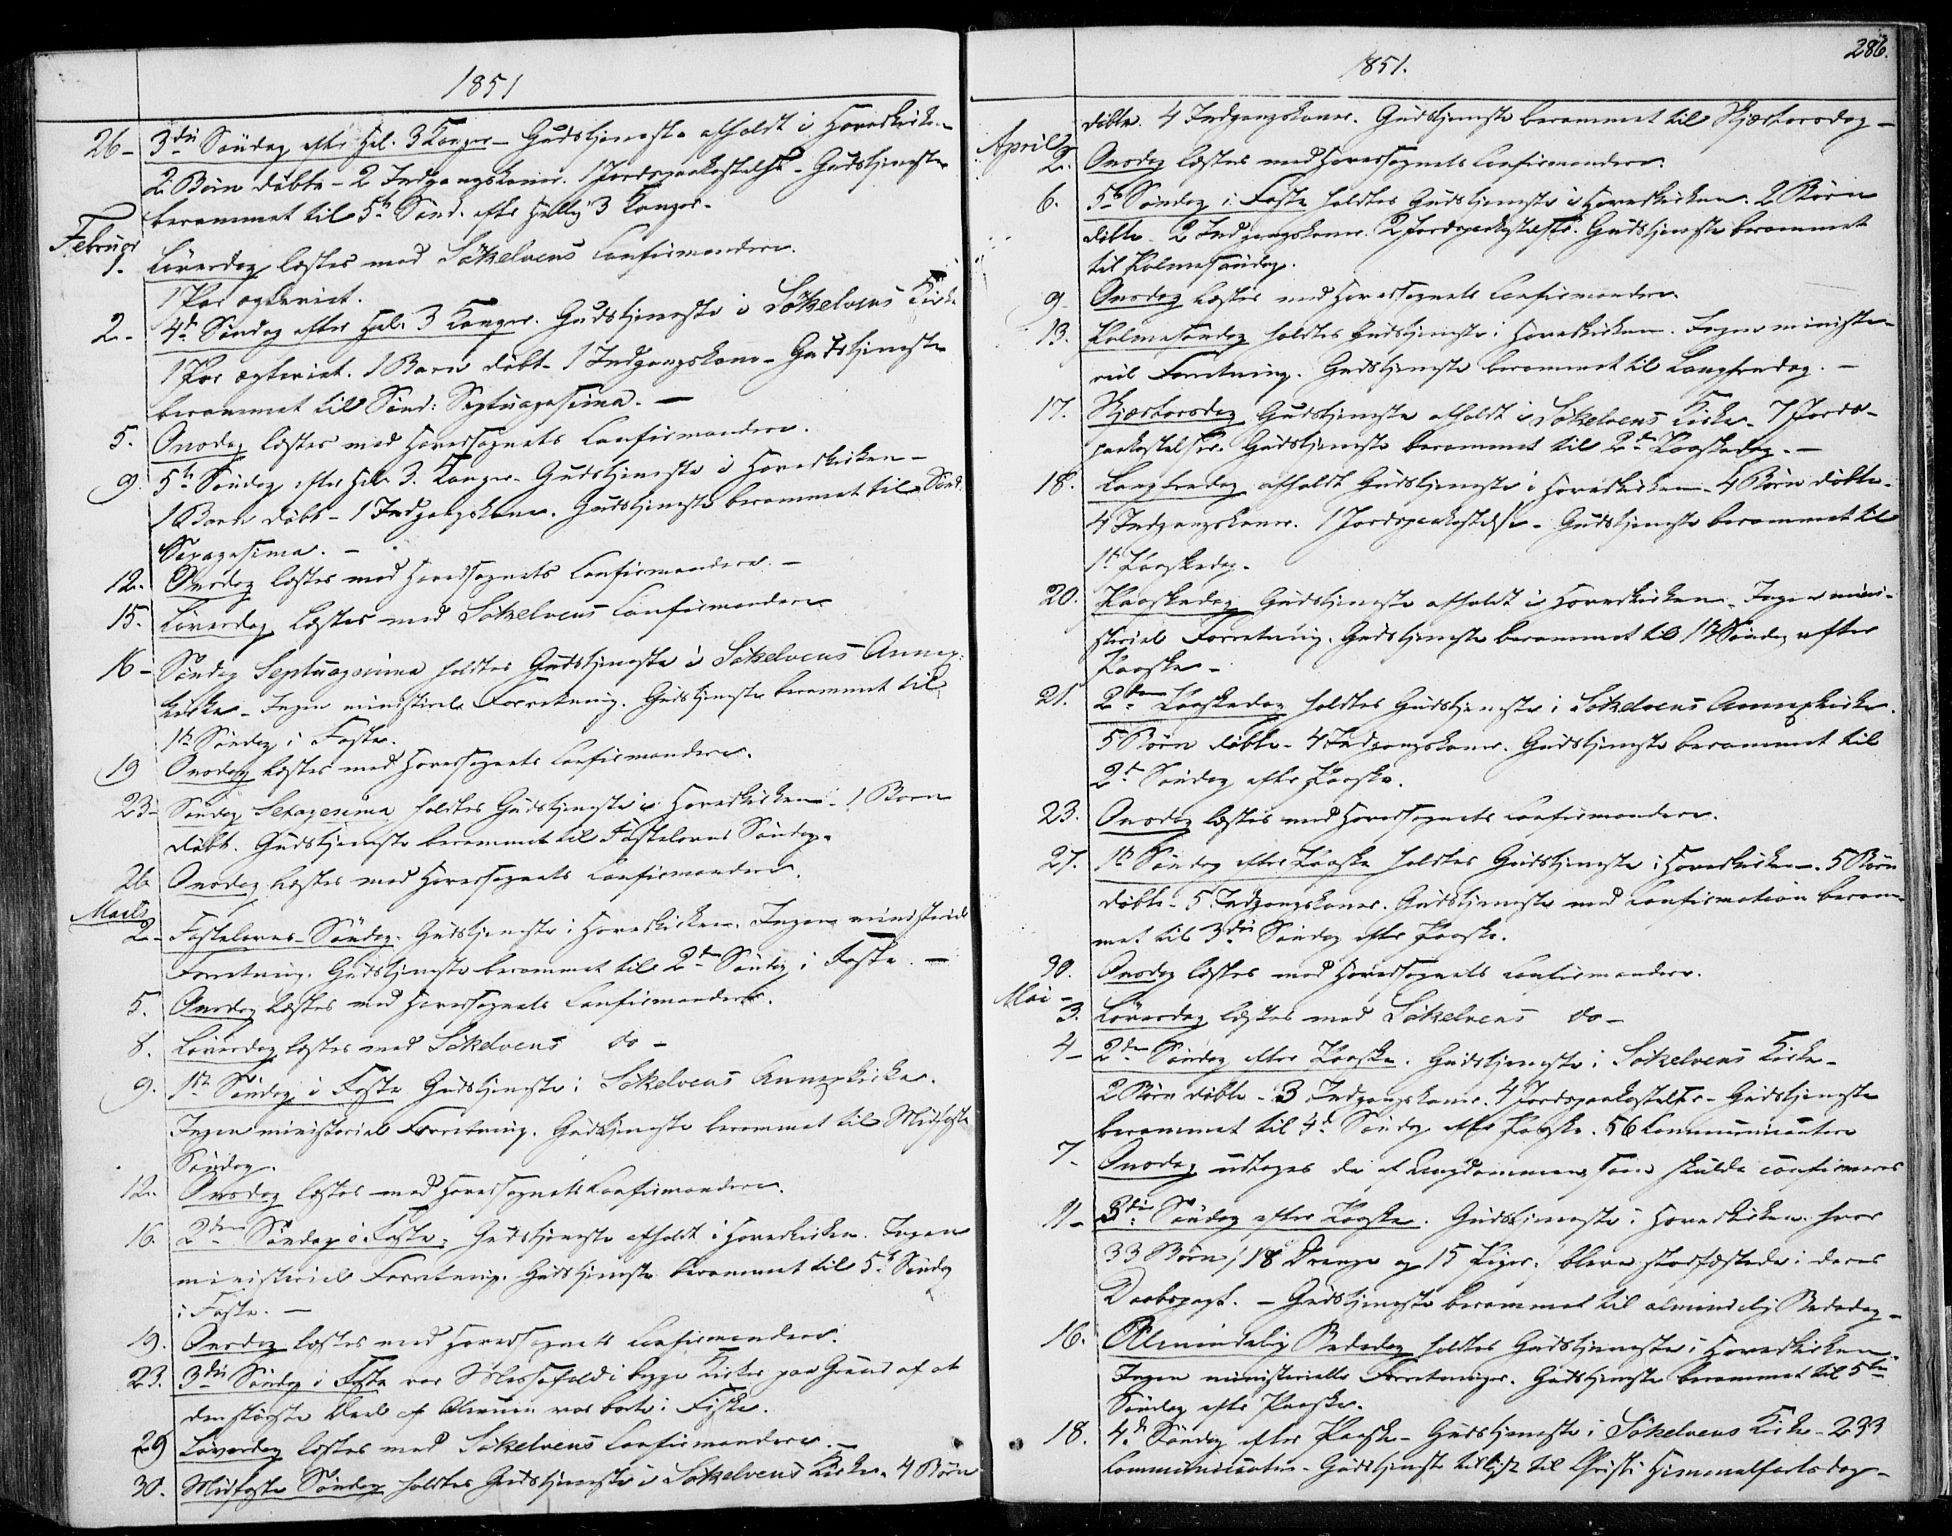 1851
26- 3die Søndag efter Hel. 3 Konger- Gudstjeneste afholdt i Hovedkirken-
2 Børn døbte - 2 Indgangskoner. 1 Jordspaakastelse - Gudstjeneste
berammet til 5te Sønd. efter Hellig 3 Konger-
Februar
1. Løverdag læstes med Sökelvens Confirmander.
1 Par ægteviet.
2- 4de Søndag efter Hel. 3 Konger. Gudstjeneste i Sökelvens Kirke
1 Par ægteviet. 1 Barn døbt - 1 Indgangskone - Gudstjeneste
berammet til Sønd: Septuagesima. -
5. Onsdag læstes med Hovedsognets Confirmander.
9. 5te Søndag efter Hel. 3. Konger- Gudstjeneste i Hovedkirken-
1 Barn døbt - 1 Indgangskone. Gudstjeneste berammet til Sønd.
Sexagesima. -
12. Onsdag læstes med Hovedsognets Confirmander. -
15. Løverdag læstes med Sökelvens Confirmander.
16- Søndag Septuagesima holdtes Gudstjeneste i Sökelvens Annex-
kirke - Ingen ministeriel Forretning. Gudstjeneste berammet til
1ste Søndag i Faste.
19 Onsdag læstes med Hovedsognets Confirmander.
23- Søndag Sexagesima holdtes Gudstjeneste i Hovedkirken - 1 Barn
døbt. Gudstjeneste berammet til Fastelavns Søndag.
26 Onsdag læstes med Hovedsognets Confirmander.
Marts
2- Fastelavns-Søndag. Gudstjeneste i Hovedkirken. Ingen ministeriel
Forretning. Gudstjeneste berammet til 2den Søndag i Faste. -
5. Onsdag læstes med Hovedsognets Confirmander.
8. Løverdag læstes med Sökelvens do -
9. 1ste Søndag i Faste Gudstjeneste i Sökelvens Annexkirke.
Ingen ministeriel Forretning. Gudstjeneste berammet til Midfaste
Søndag.
12. Onsdag læstes med Hovedsognets Confirmander.
16. 2den Søndag i Faste, Gudstjeneste afholdt i Hovedkirken. Ingen
ministeriel Forretning. Gudstjeneste berammet til 5te Søndag
i Faste. -
19. Onsdag læstes med Hovedsognets Confirmander.
23. 3die Søndag i Faste var Messefald i begge Kirker paa Grund af at
den største Deel af Almuen var borte i Fiske.
29 Løverdag læstes med Sökelvens Confirmander. -
30. Midfaste Søndag holdtes Gudstjeneste i Sökelvens Kirke. 4 Børn
1851. 286.
døbte. 4 Indgangskoner. Gudstjeneste berammet til Skjærtorsdag -
April
2. Onsdag læstes med Hovedsognets Confirmander.
6. 5te Søndag i Faste holdtes Gudstjeneste i Hovedkirken. 2 Børn
døbte - 2 Indgangskoner. 2 Jordspaakastelser. Gudstjeneste berammet
til Palmesøndag.
9. Onsdag læstes med Hovedsognets Confirmander.
13. Palmesøndag holdtes Gudstjeneste i Hovedkirken. Ingen ministe-
riel Forretning. Gudstjeneste berammet til Langfredag. -
17. Skjærtorsdag Gudstjeneste afholdt i Sökelvens Kirke - 7 Jords-
paakastelser. Gudstjeneste berammet til 2den Paaskedag. -
18. Langfredag afholdt Gudstjeneste i Hovedkirken - 4 Børn døbte -
4 Indgangskoner. 1 Jordspaakastelse - Gudstjeneste berammet til
1ste Paaskedag.
20. Paaskedag Gudstjeneste afholdt i Hovedkirken - Ingen mini-
steriel Forretning. Gudstjeneste berammet til 1ste Søndag efter
Paaske -
21. 2den Paaskedag holdtes Gudstjeneste i Sökelvens Annexkirke.
5 Børn døbte - 4 Indgangskoner. Gudstjeneste berammet til
2den Søndag efter Paaske.
23. Onsdag læstes med Hovedsognets Confirmander.
27. 1ste Søndag efter Paaske holdtes Gudstjeneste i Hovedkirken -. 5 Børn
døbte - 5 Indgangskoner. Gudstjeneste med Confirmation beram-
met til 3die Søndag efter Paaske.
30. Onsdag læstes med Hovedsognets Confirmander.
Mai -
3. Løverdag læstes med Sökelvens do -
4- 2den Søndag efter Paaske. Gudstjeneste i Sökelvens Kirke -
2 Børn døbte - 3 Indgangskoner. 4 Jordspaakastelser - Gudstjeneste
berammet til 4de Søndag efter Paaske. 56 Communicantere
7- Onsdag udtoges de af Ungdommen, som skulde confirmeres
11- 3die Søndag efter Paaske. Gudstjeneste i Hovedkirken hvor
33 Børn / 18 Drenge og 15 Piger / bleve stadfæstede i deres
Daabspagt. - Gudstjeneste berammet til almindelig Bededag -
16. Almindelig Bededag holdtes Gudstjeneste i Hovedkirken.
Ingen ministerielle Forretninger. Gudstjeneste berammet til 5te
Søndag efter Paaske.
18. 4de Søndag efter Paaske - Gudstjeneste i Sökelvens Kirke - 233
Communicanter - Gudstjeneste tillyst til Christi Himmelfartsdag -